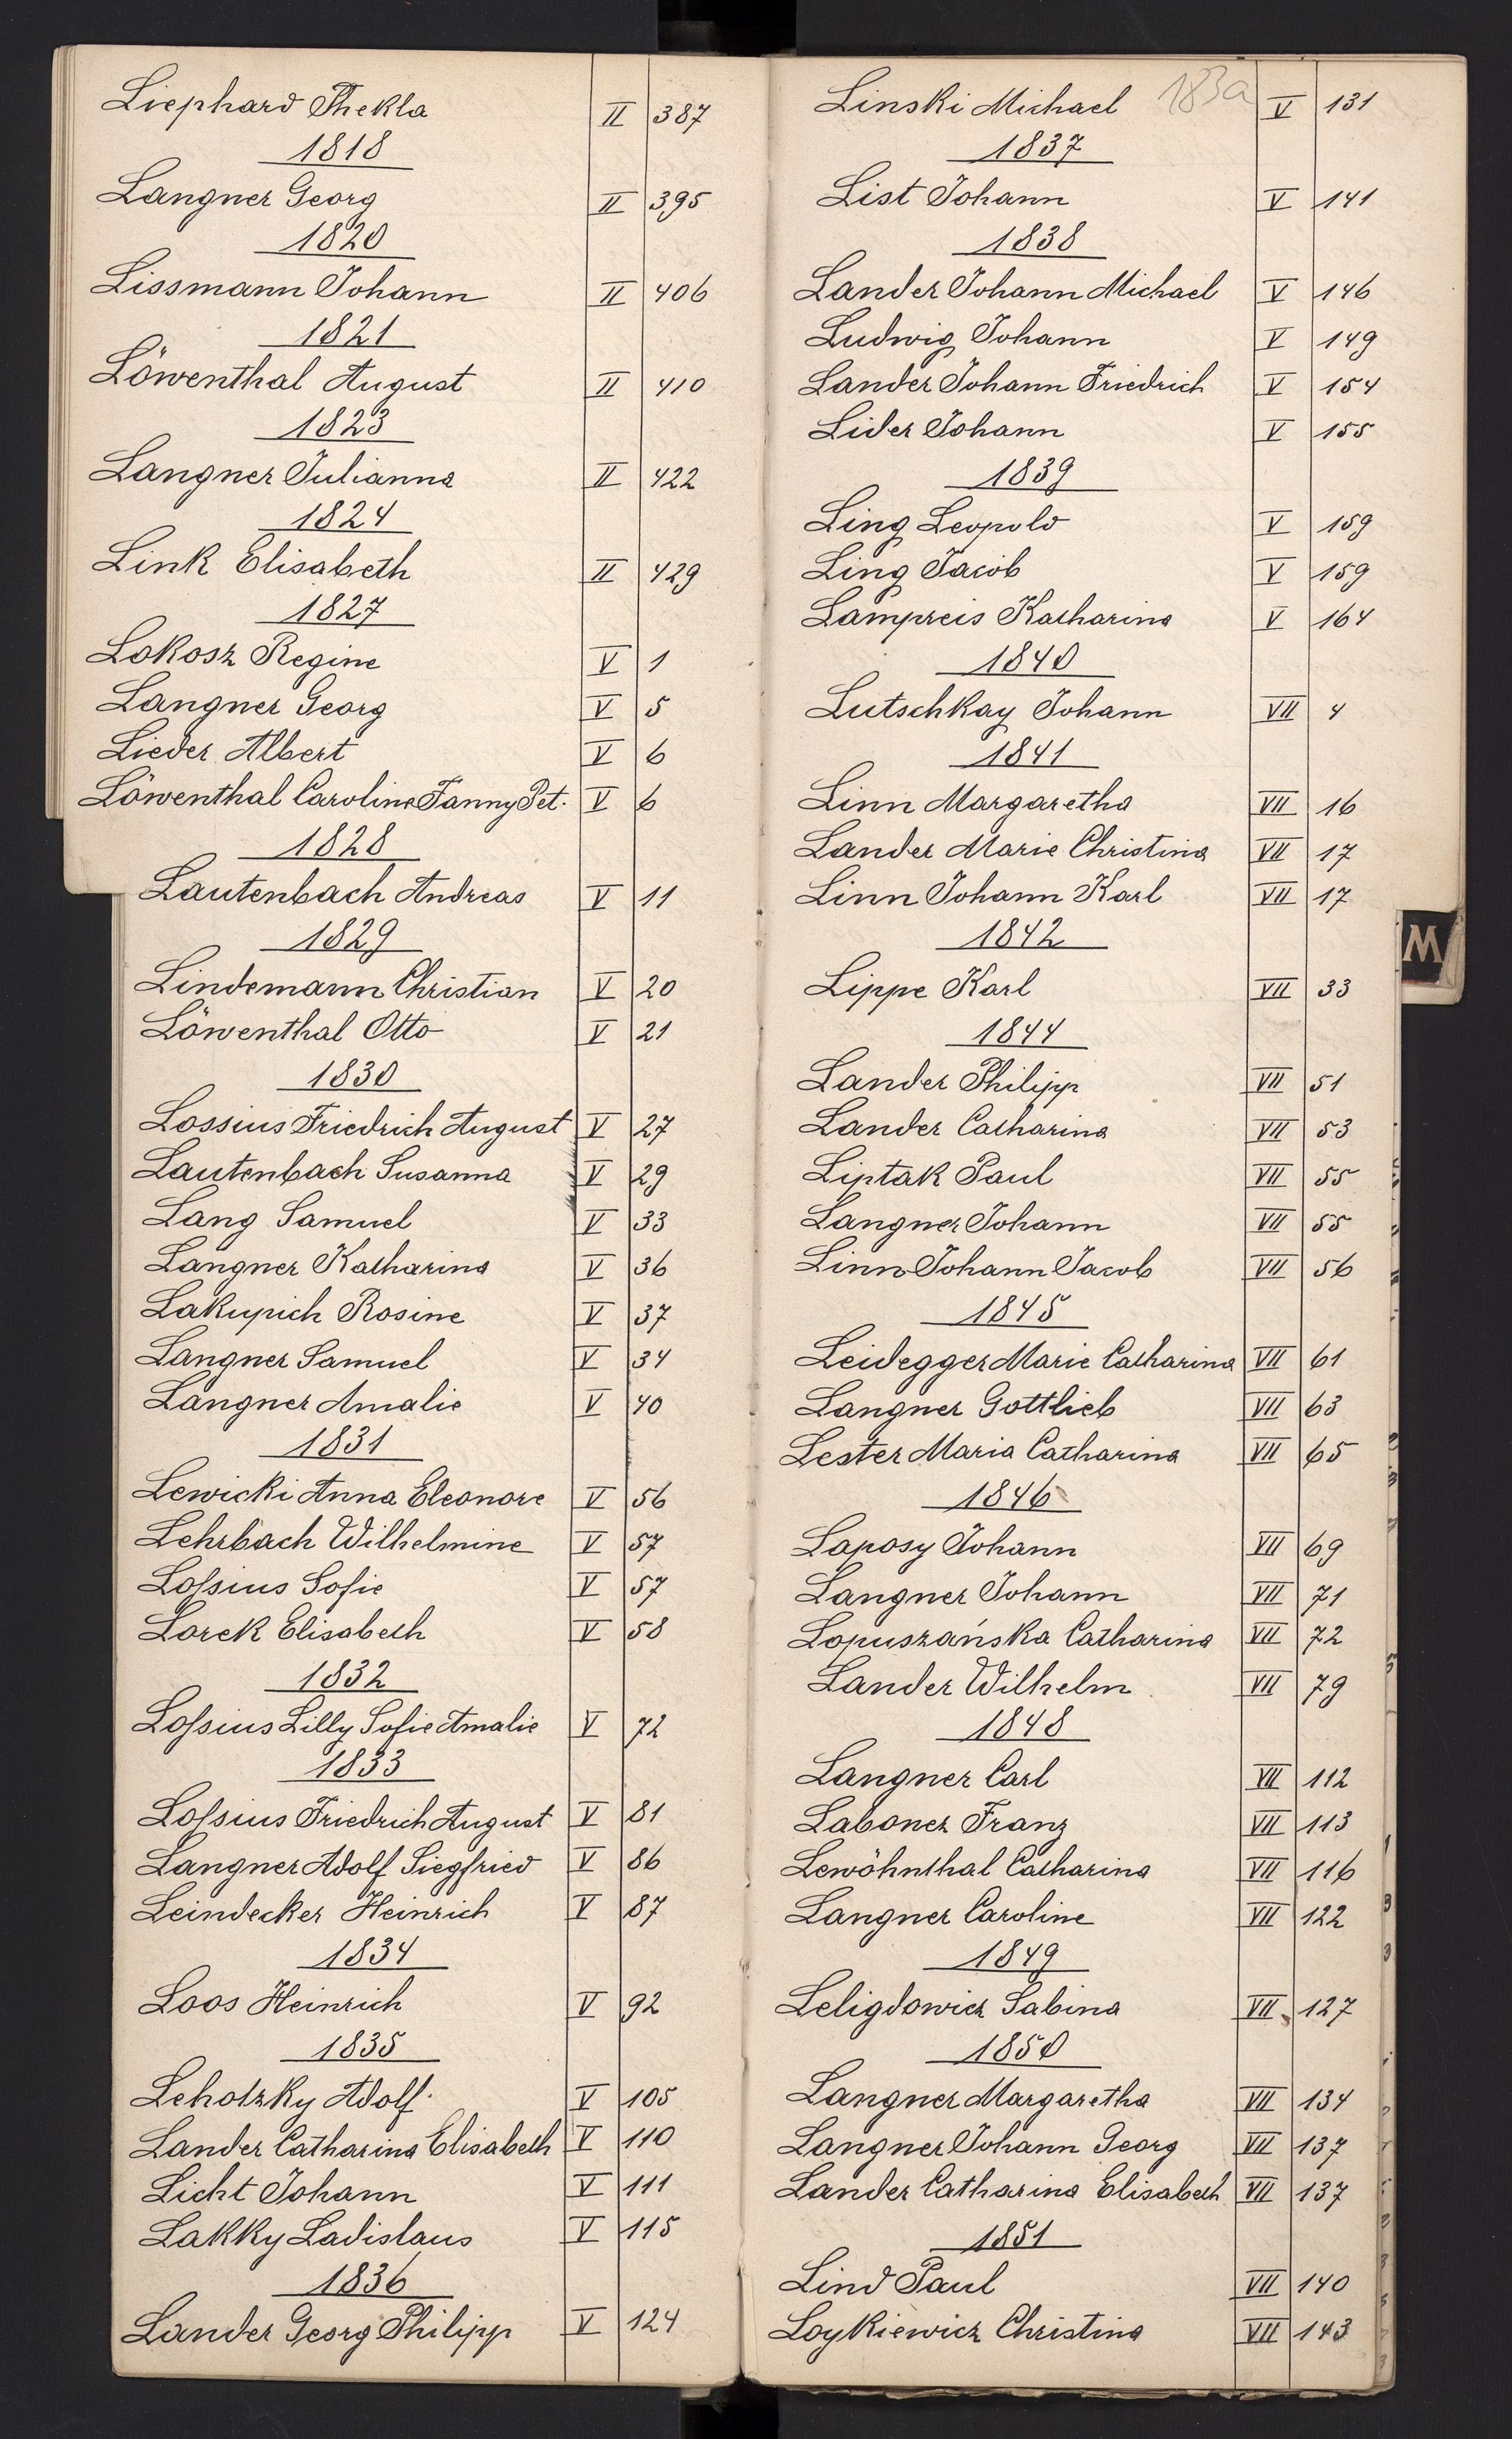 Liephard Thekla II 387
1818
Langner Georg II 395
1820
Lissmann Johann II 406
1821
Löwenthal August II 410
1823
Langner Julianna II 422
1824
Link Elisabeth II 429
1827
Lokosz Regine V 1
Langner Georg V 5
Lieder Albert V 6
Löwenthal Caroline Fanny Pet. V 6
1828
Lautenbach Andreas V 11
1829
Lindemann Christian V 20
Löwenthal Otto V 21
1830
Lossius Friedrich August V 27
Lautenbach Susanna V 29
Lang Samuel V 33
Langner Katharina V 36
Lakupich Rosine V 37
Langner Samuel V 34
Langner Amalie V 40
1831
Lewicki Anna Eleonore V 56
Lehrbach Wilhelmine V 57
Loſsius Sofie V 57
Lorek Elisabeth V 58
1832
Loſsius Lilly Sofie Amalie V 72
1833
Loſsius Friedrich August V 81
Langner Adolf Siegfried V 86
Leindecker Heinrich V 87
1834
Loos Heinrich V 92
1835
Leholzky Adolf V 105
Lander Catharina Elisabeth V 110
Licht Johann V 111
Lakky Ladislaus V 115
1836
Lander Georg Philipp V 124
183a
Linski Michael V 131
1837
List Johann V 141
1838
Lander Johann Michael V 146
Ludwig Johann V 149
Lander Johann Friedrich V 154
Lider Johann V 155
1839
Ling Leopold V 159
Ling Jacob V 159
Lampreis Katharina V 164
1840
Lutschkay Johann VII 4
1841
Linn Margaretha VII 16
Lander Marie Christina VII 17
Linn Johann Karl VII 17
1842
Lippe Karl VII 33
1844
Lander Philipp VII 51
Lander Catharina VII 53
Liptak Paul VII 55
Langner Johann VII 55
Linn Johann Jacob VII 56
1845
Leidegger Marie Catharina VII 61
Langner Gottlieb VII 63
Lester Maria Catharina VII 65
1846
Laposy Johann VII 69
Langner Johann VII 71
Lopuszańska Catharina VII 72
Lander Wilhelm VII 79
1848
Langner Carl VII 112
Labonez Franz VII 113
Lewöhnthal Catharina VII 116
Langner Caroline VII 122
1849
Leligdowicz Sabina VII 127
1850
Langner Margaretha VII 134
Langner Johann Georg VII 137
Lander Catharina Elisabeth VII 137
1851
Lind Paul VII 140
Loykiewicz Christina VII 143
M